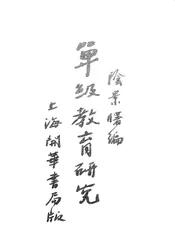 陰景曙編
單級教育研究
上海開華書局版